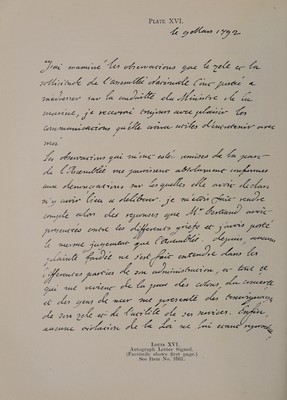 PLATE XVI.
le 9 Mars 1792
J'ai examiné les observations que le zele et la
sollicitude de l'assemblée nationale l'ont porté a
m'adresser sur la conduitte du Ministre de la
marine, je recevrai toujours avec plaisir les
communications qu'elle avec
moi
Les observations qui m'ont esté remises de la part
de l'Assemblée me paroissent absolument conformes
aux denonciations sur lesquelles elle avoit déclaré
n'y avoir lieu a deliberer. je me fis rendre
compte alors des reponses que Mr Bertrand avoit
les differents griefs et j'avois porté
le mesme jugement que l'Assemblée. depuis, aucune
plainte fondée ne s'est fait entendre dans les
differentes parties de son administration, et tout ce
qui me revient de la part des colons, du commerce
et des gens de mer me presente des temoignages
de son zele et de l'utilité de ses services. Enfin,
aucune violation de la Loi ne lui etant reprochée
LOUIS XVI.
Autograph Letter Signed.
(Facsimile shows first page.)
See Item No. 1661.